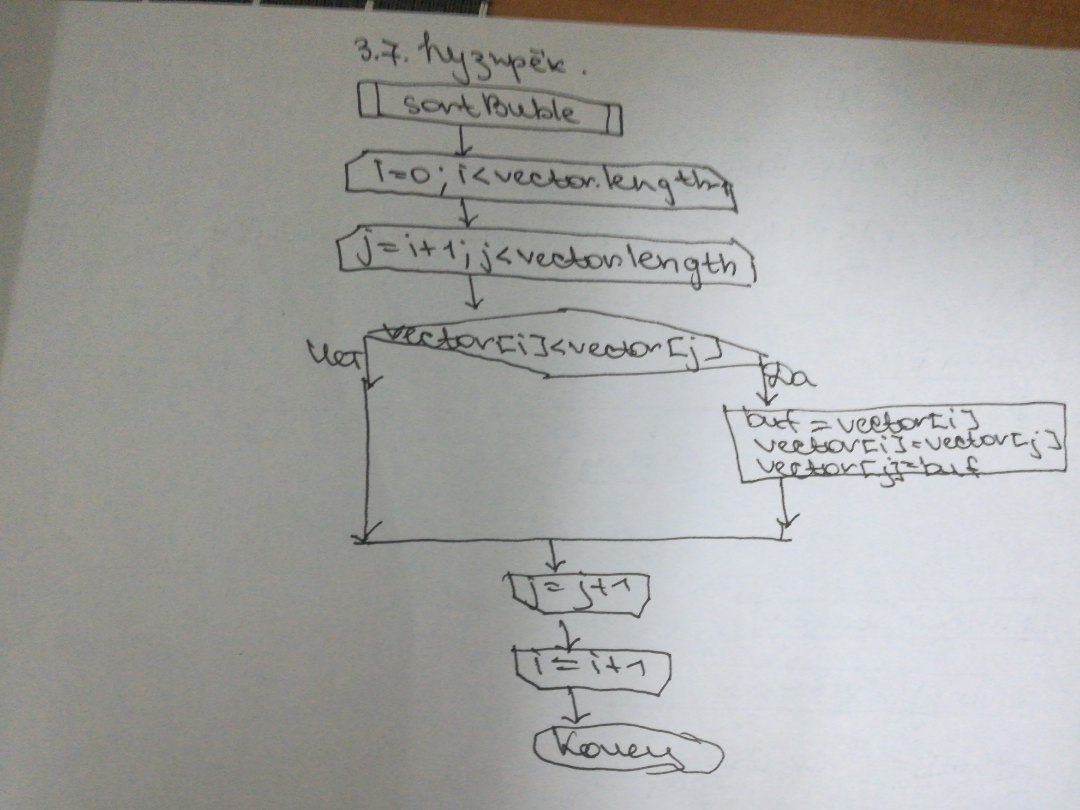 3.7. Пузырёк.
sortBuble
i=0; i<vector.length-1
j=i+1; j<vector.length
vector[i]<vector[j]
Нет
Да
buf = vector[i]
vector[i]=vector[j]
vector[j]=buf
j=j+1
i=i+1
Конец